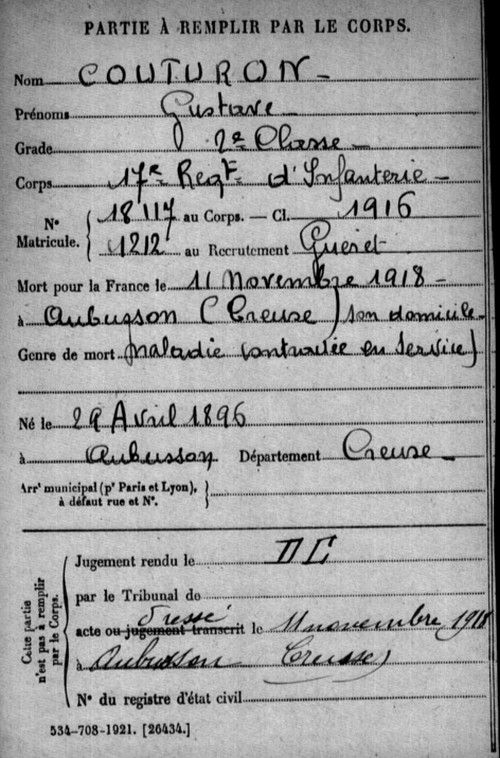 PARTIE À REMPLIR PAR LE CORPS.
Nom COUTURON
Prénoms Gustave
Grade 2e Classe
Corps 17e Regt d'Infanterie
N° Matricule. { 18117 au Corps. — Cl. 1916
1212 au Recrutement Guéret
Mort pour la France le 11 Novembre 1918
à Aubusson (Creuse) son domicile
Genre de mort maladie contractée en service)
Né le 29 Avril 1896
à Aubusson Département Creuse
Arrt municipal (pr Paris et Lyon), à défaut rue et N°. }
Cette partie n'est pas à remplir par le Corps. {
Jugement rendu le DC
par le Tribunal de
dressé
acte ou jugement transcrit le 11 novembre 1918
à Aubusson Creuse)
N° du registre d'état civil
534-708-1921. [26434.]